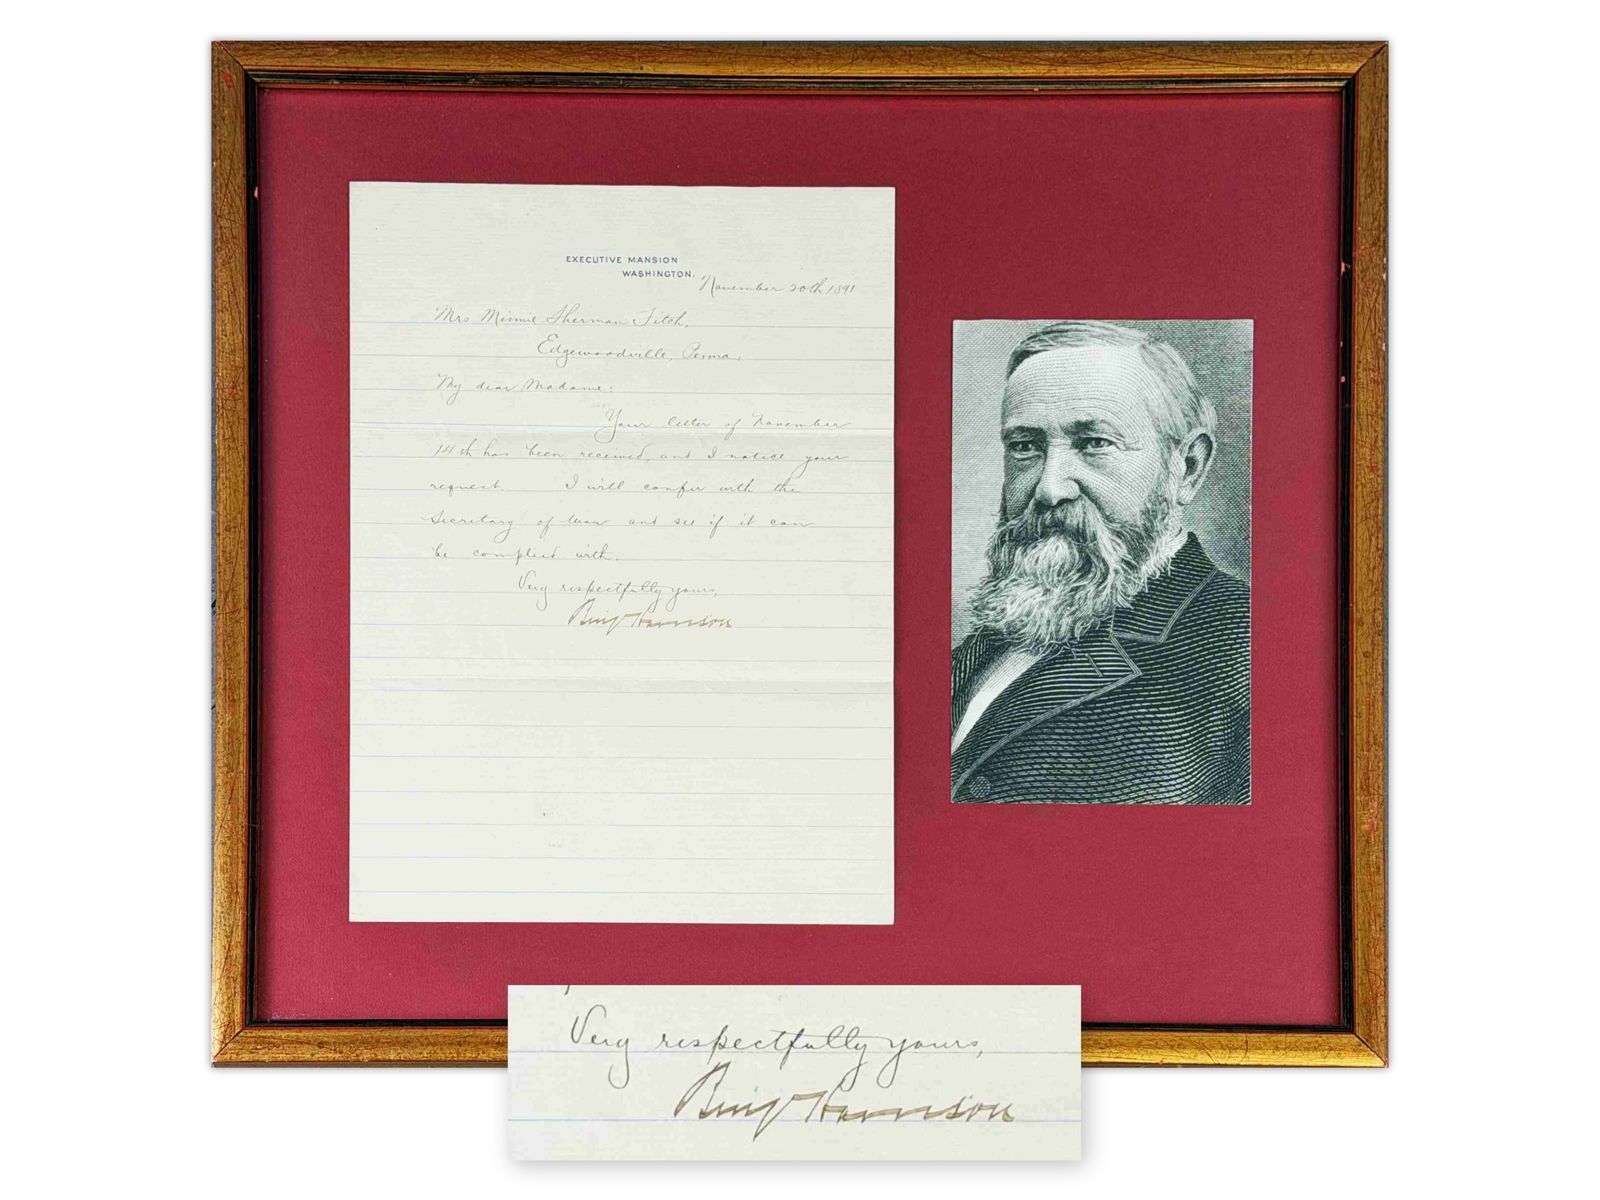 EXECUTIVE MANSION
WASHINGTON.
November 20th 1891
Mrs Minnie Sherman Fitch,
Edgewoodville, Penna.
My dear Madame:
Your letter of November
14th has been received, and I notice your
request. I will confer with the
Secretary of War and see if it can
be complied with.
Very respectfully yours,
Benj Harrison
Very respectfully yours,
Benj Harrison